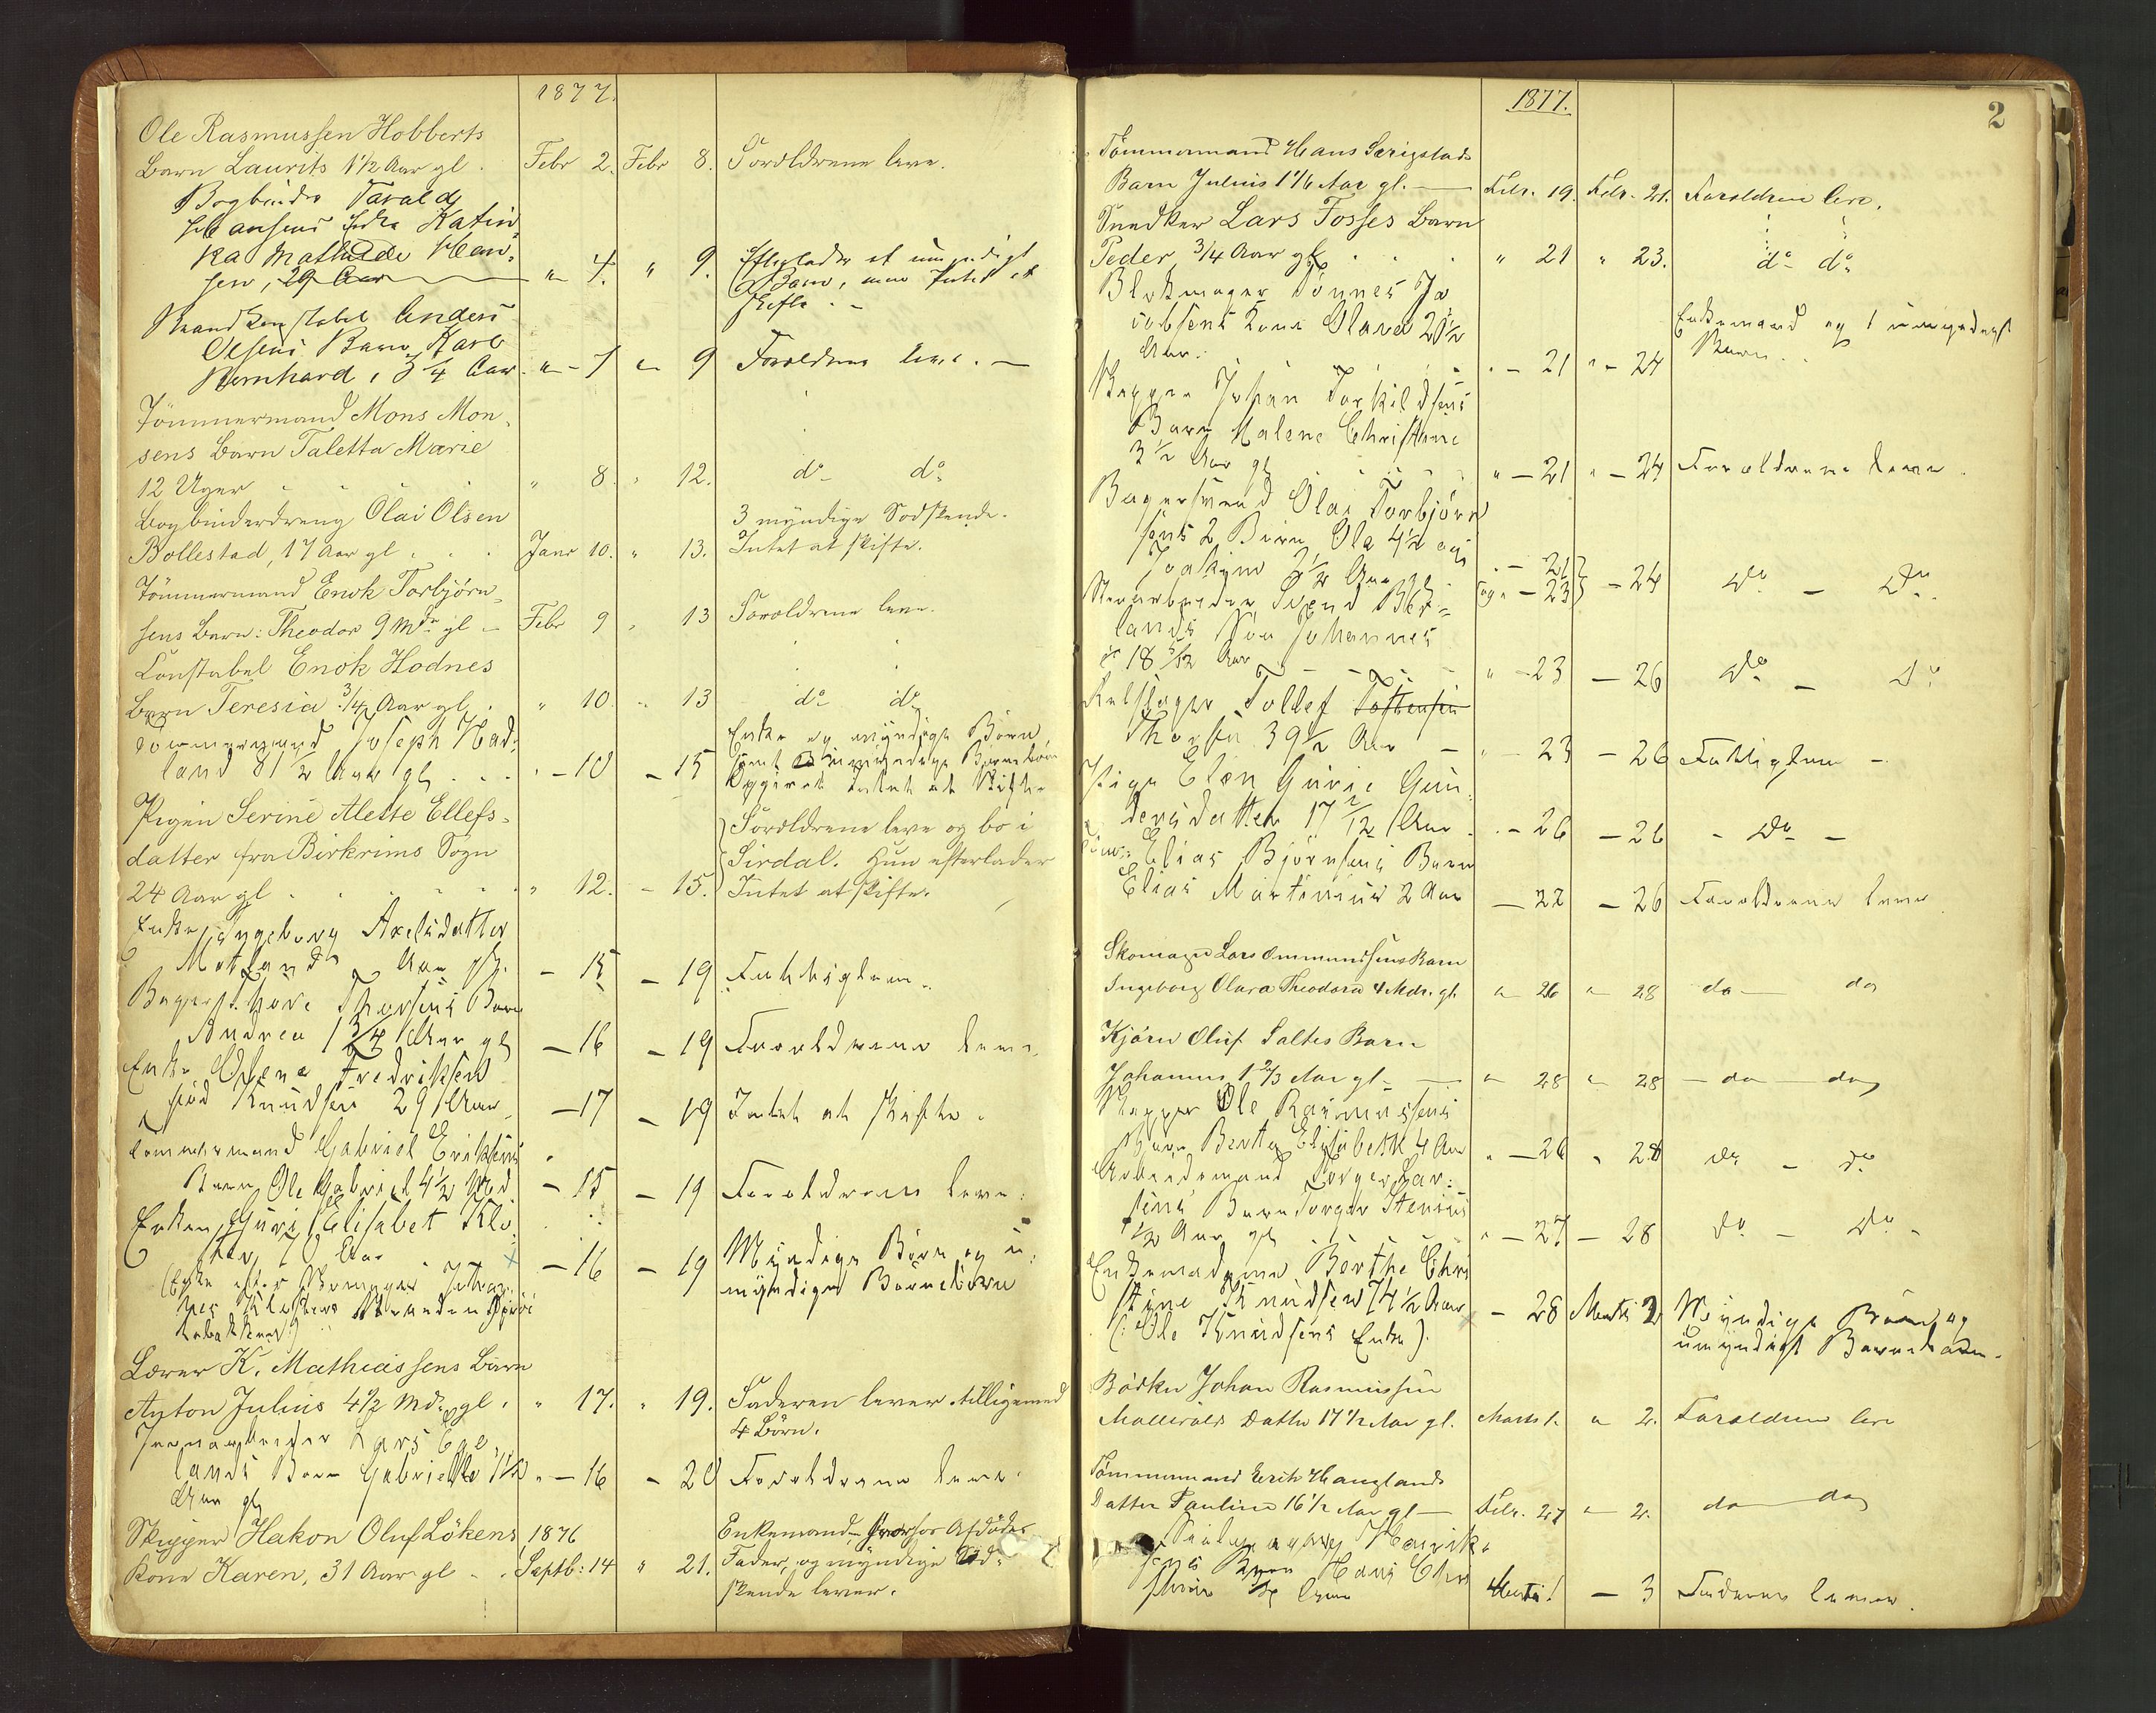 1877.
Ole Rasmussen Hobberts
Barn Laurits 1 1/2 Aar gl. Febr 2. Febr 8. Forældrene leve.
Bogbinder Tarald
Hansens Katin-
ka Mathilde Han-
sen, 29 Aar " 4. " 9. Efterlader et umyndigt
Barn, men Intet at
skifte.
Brandkonstabel Anders
Olsens Barn Karl
Bernhard, 3 1/4 Aar " 7 " 9 Forældrene leve.
Tömmermand Mons Mon-
sens Barn Taletta Marie
12 Uger " 8. " 12. do do
Bogbinderdreng Olai Olsen 3 myndige Sødskende.
Bollestad, 17 Aar gl. Janr 10. " 13. Intet at skifte.
Tömmermand Enok Torbjørn-
sens Barn: Theodor 9 Mdr gl Febr 9 " 13 Forældrene leve.
Konstabel Enok Hodnes
Barn Teresia 3/4 Aar gl. " 10. " 13 do do
Tömmermand Joseph Had-
land 81 1/2 Aar gl. - 10 - 15 Enke og myndige Børn
samt umyndige Børnebørn
Opgivet Intet at Skifte
Pigen Serine Alette Ellefs-
datter fra Birkrims Sogn
24 Aar gl " 12. - 15. Forældrene leve og bo i
Sirdal. Hun efterlader
Intet at skifte.
Enke Ingeborg Axelsdatter
Motland Aar gl. - 15 - 19 Fattiglem.
Bager Thore Thorsens Barn
Andrea 1 3/4 Aar gl - 16 - 19 Forældrene leve.
Enke Olene Fredriksen
född Knudsen 29 Aar - 17 - 19 Intet at skifte.
Tömmermand Gabriel Eriksens
Barn Ole Gabriel 4 1/2 Md. - 15 - 19 Forældrene leve.
Enken Guri Elisabet Klo-
ster, 70 Aar - 16 - 19 Myndige Børn og u-
myndige Børnebørn
(Enke efter Skomager
Klosters Stranden
Lærer K. Mathiassens Barn
Anton Julius 4 1/2 Md. gl. " 17. " 19. Faderen lever tilligemed
4 Börn.
Lars Ege-
lands Barn Gabriella 1 1/2 " - 16 - 20 Forældrene leve.
Aar gl
Skipper Hakon Oluf Lökens 1876
Kone Karen, 31 Aar gl Septb: 14 " 21. Enkemand, Afdødes
Fader, og myndige Sød-
skende lever.
2
1877.
Tömmermand Hans Serigstads
Barn Julius 1 1/6 Aar gl. Febr. 19. Febr. 21. Foræeldrene leve.
Snedker Lars Fosses Barn
Peder 3/4 Aar gl. " 21 " 23. do do
Blokmager Tönnes Ja-
cobsens Kone Olava 28 1/2
Aar. - 21 " - 24 Enkemand og 1 umyndigt
Barn.
Johan Torkildsens
Barn Malene Christine
3 1/2 Aar gl " - 21 " - 24 Forældrene leve.
Bagersvend Olai Torbjörn-
sens 2 Börn Ole 4 1/2 og
Joakim 2 1/2 Aar gl. - 21 og " - 23 - 24 do - do
Svend Ber-
lands Sön Johannes
18 5/12 Aar " - 23 - 26 do - do
Reslager Tollef Tostensen
Thorsen 39 1/2 Aar - 23 - 26 Fattiglem -
Pige Elen Gurie Gun-
dersdatter 17 2/12 Aar - 26 - 26 - do -
Elias Björnsens Barn
Elias Martinius 2 Aar - 22 - 26 Forældrene leve
Skomager Lars Ommundsens Barn
Ingeborg Olava Theodora 4 Mdr. gl. " 26 " 28 do do
Kjörer Oluf Saltes Barn
Johannes 1 2/3 Aar gl. " 28 " 28 - do - do
Ole Rasmussens
Barn Berta Elisabeth 4 Aar " - 26 " 28 do - do
Arbeidsmand Torger Lar-
sens Barn Torger Stenius
1/2 Aar gl " - 27 - 28 do - do
Enkemadame Berthe Chri-
stine Knudsen 74 1/2 Aar - 28 Marts 2 Myndige Børn og
(: Ole Knudsens Enke). umyndigt Barnebarn.
Bödker Johan Rasmussen
Mollevolds Datter 17 1/2 Aar gl. Marts 1. " 2. Foræeldrene leve
Tömmermand Erik Hauglands
Datter Pauline 16 1/2 Aar gl Febr. 27 " 2. do do
Henrik-
sens Barn Hans Chri-
stian Aar Marts 1 - 3 Faderen lever.